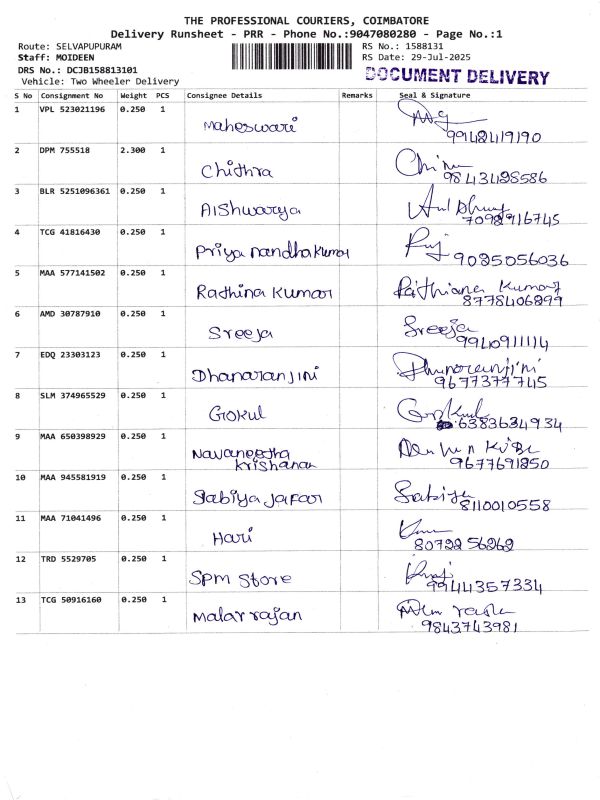 THE PROFESSIONAL COURIERS, COIMBATORE
Delivery Runsheet - PRR - Phone No.:9047080280 - Page No.:1
Route: SELVAPUPURAM RS No.: 1588131
Staff: MOIDEEN RS Date: 29-Jul-2025
DRS No.: DCJB158813101
Vehicle: Two Wheeler Delivery
DOCUMENT DELIVERY
S No Consignment No Weight PCS Consignee Details Remarks Seal & Signature
1 VPL 523021196 0.250 1 Maheswari
99424 19190
2 DPM 755518 2.300 1 Chithra
9843428586
3 BLR 5251096361 0.250 1 Aishwarya
7092916745
4 TCG 41816430 0.250 1 Priya nandhakumar
9025056036
5 MAA 577141502 0.250 1 Rathina Kumar
8778406899
6 AMD 30787910 0.250 1 Sreeja Sreeja
9940911114
7 EDQ 23303123 0.250 1 Dhanaranjini
9677377745
8 SLM 374965529 0.250 1 Gokul
6383634934
9 MAA 650398929 0.250 1 Navaneetha
Krishanan
9677691850
10 MAA 945581919 0.250 1 Sabiya Jafar
8110010558
11 MAA 71041496 0.250 1 Hari
80722 56262
12 TRD 5529705 0.250 1 SPM Store
99443 57334
13 TCG 50916160 0.250 1 Malar rajan
9843743981